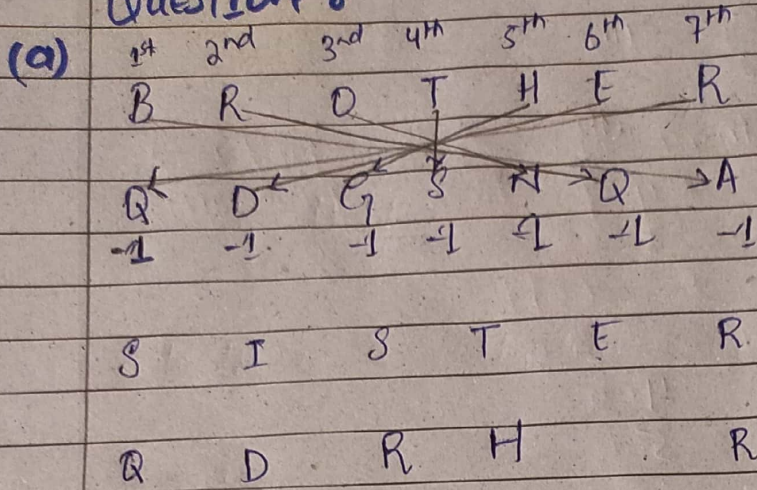 (a) 1st 2nd 3rd 4th 5th 6th 7th
B R O T H E R
Q D G S N Q A
-1 -1 -1 -1 -1 -1 -1
S I S T E R
Q D R H R